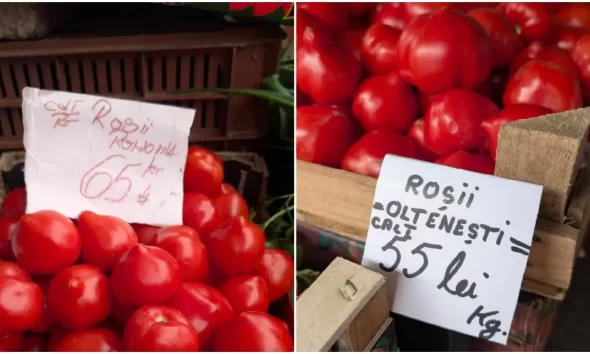 CAL I
Roșii
România
65
ROȘII
=OLTENEȘTI=
CALI
55 lei
Kg.